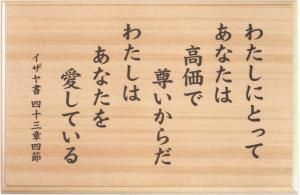 わたしにとって
あなたは
高価で
尊いからだ
わたしは
あなたを
愛している
イザヤ書 四十三章四節